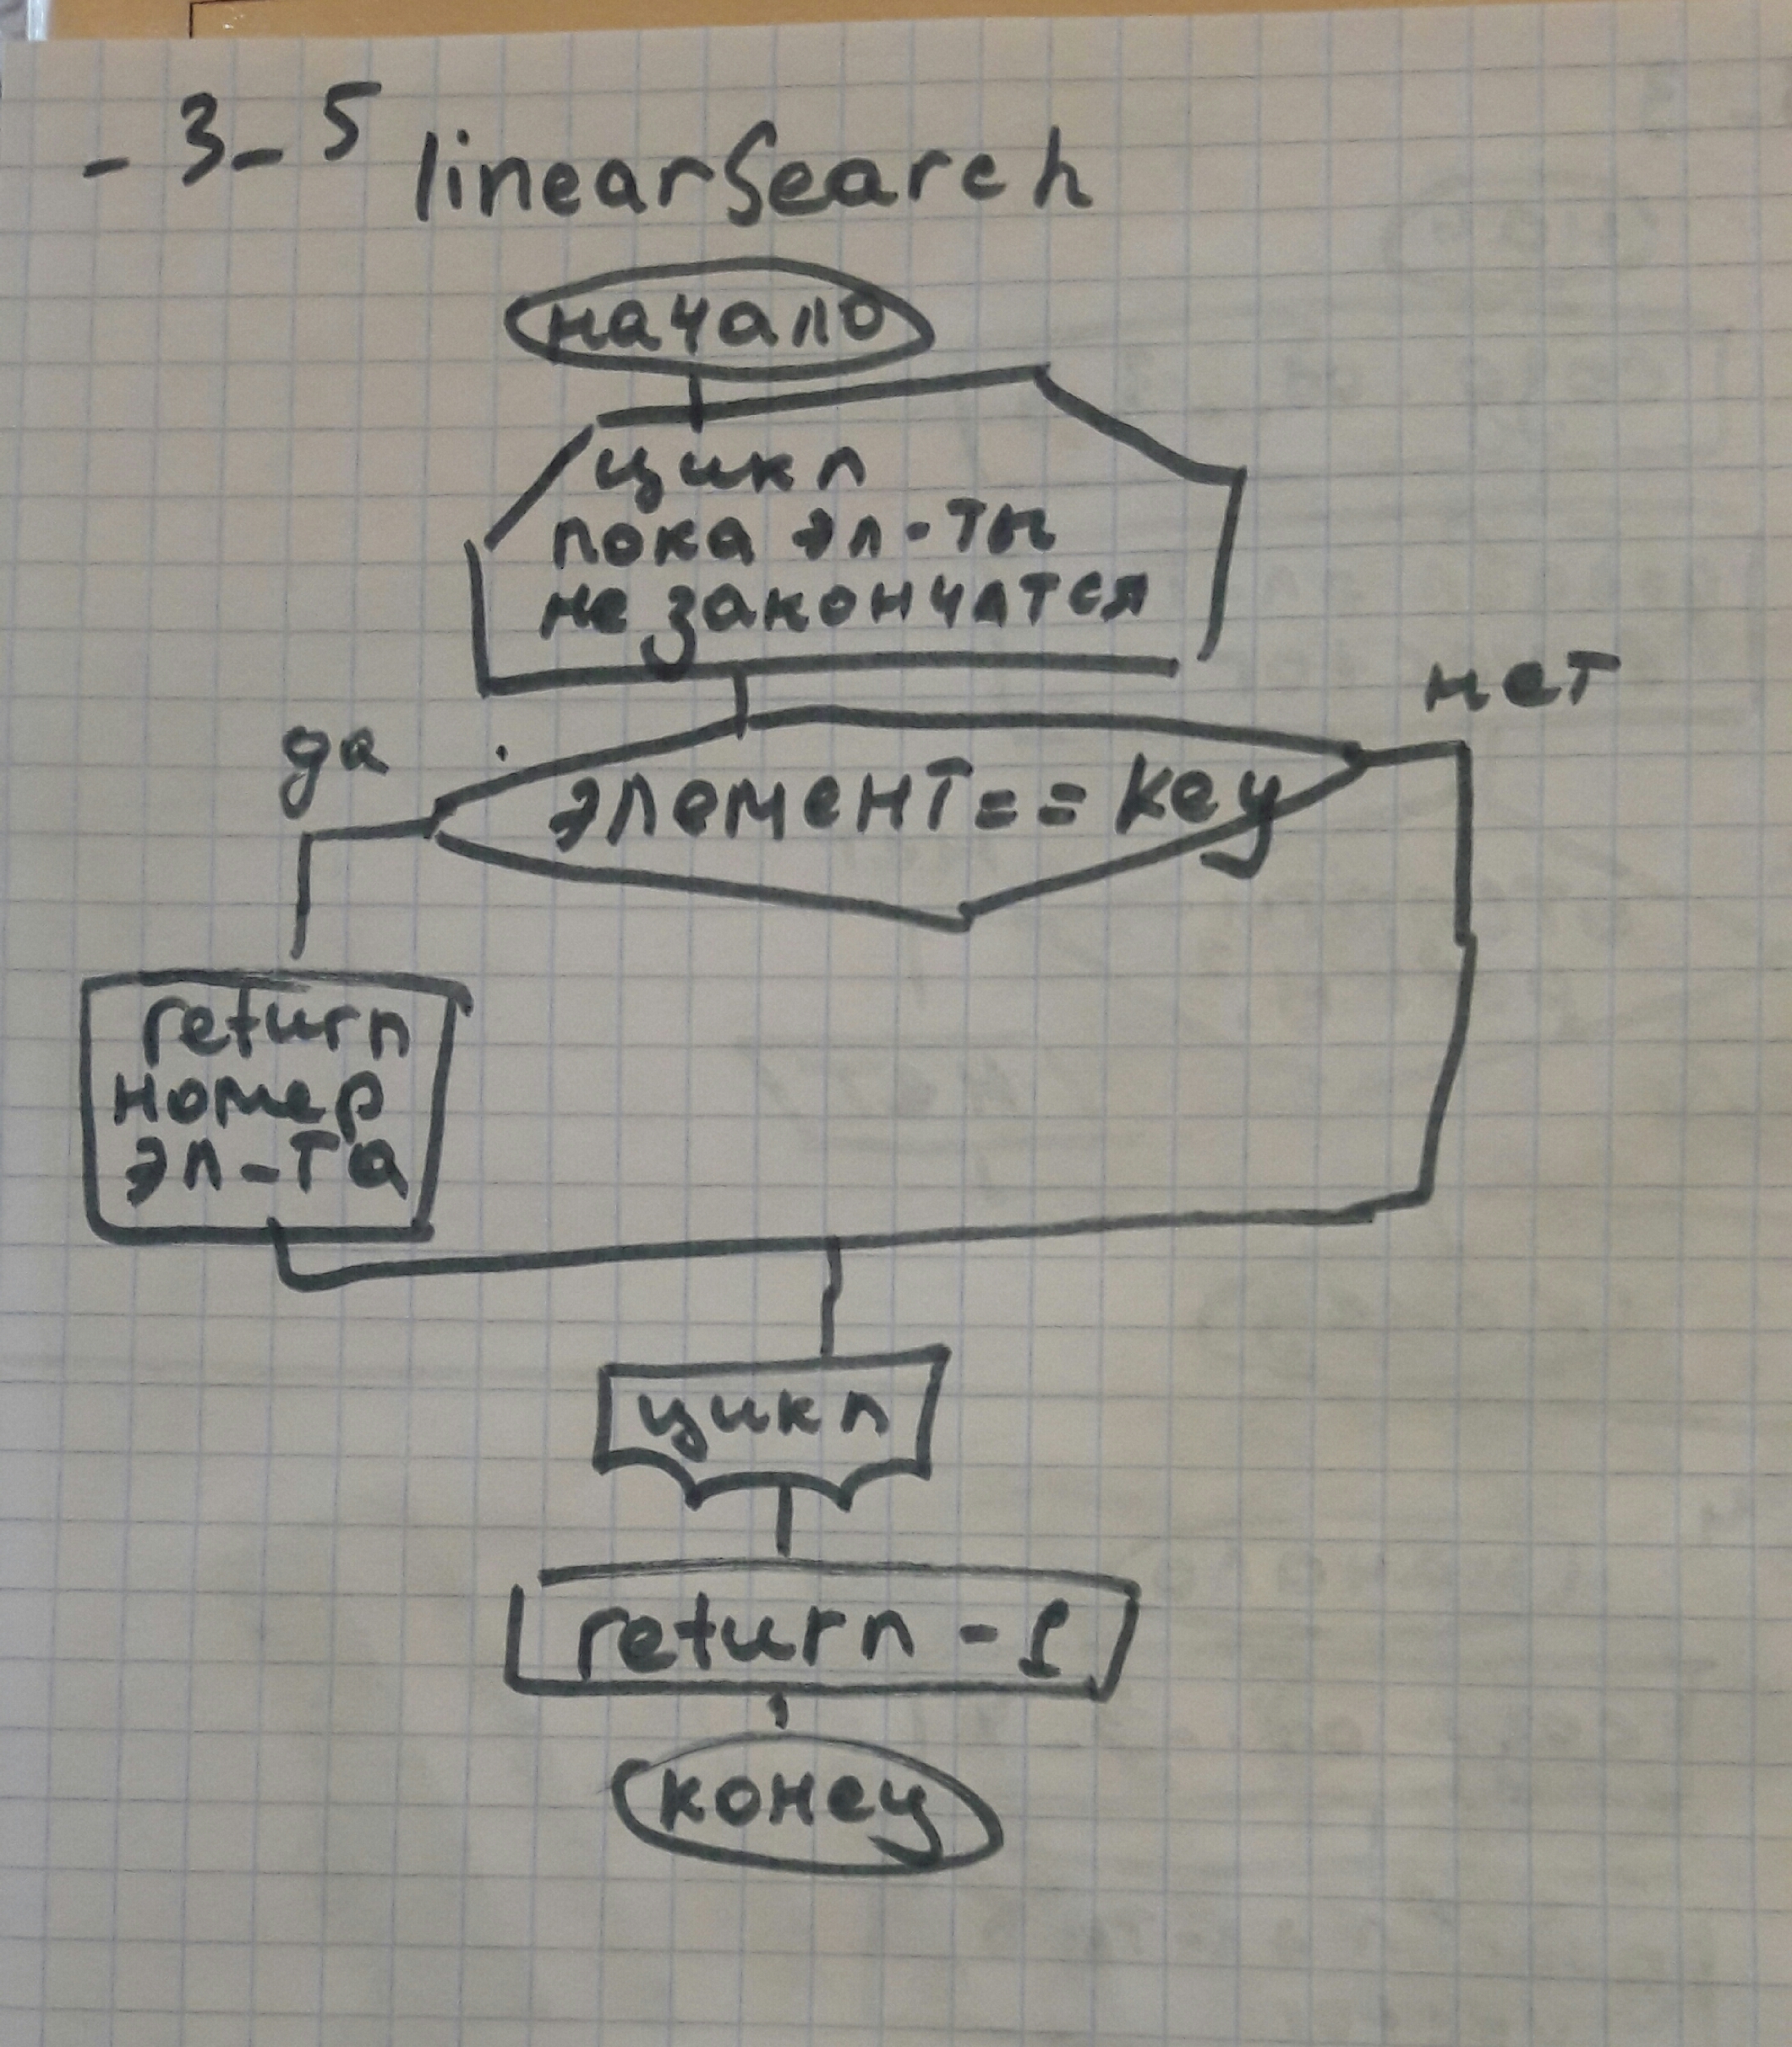 - 3 - 5 linearSearch
начало
цикл
пока эл-ты
не закончатся
да
нет
элемент == key
return
номер
эл-та
цикл
return -1
конец